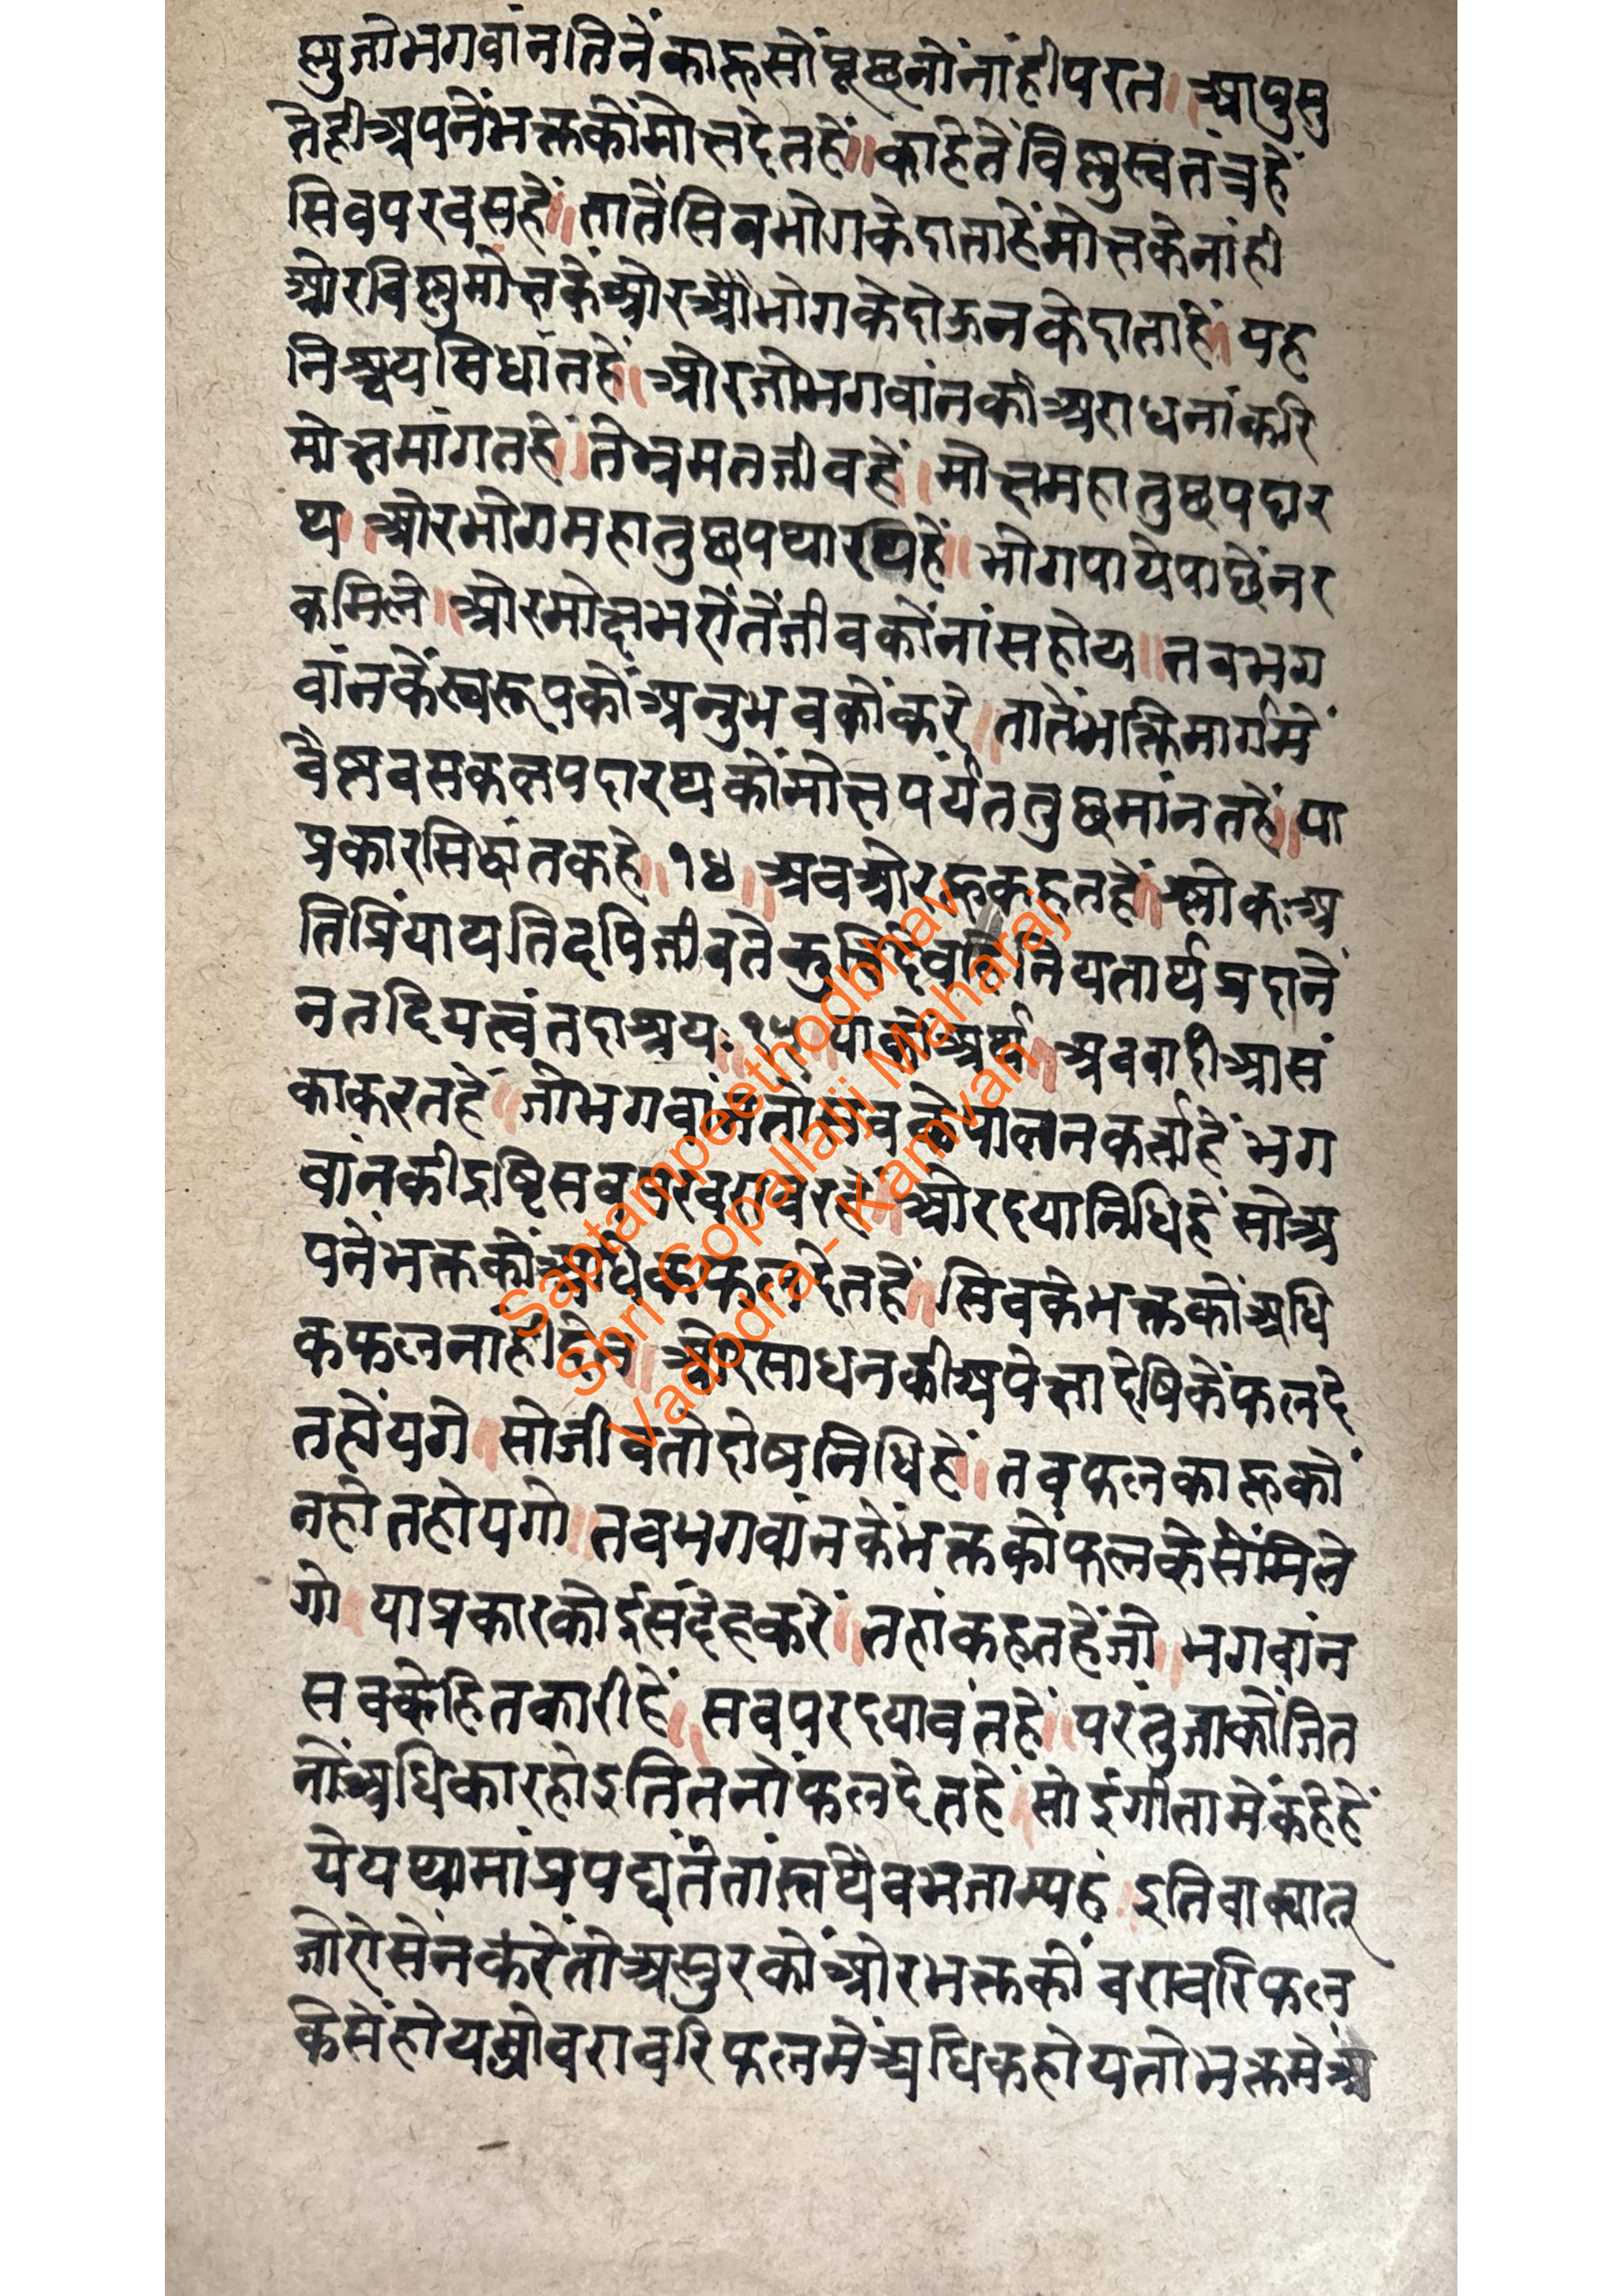 ष्णु जो भगवांन तिनें काहूसों पूछनोंनांही परत ॥ आपुसु
तेही अपनें भक्तकों मोक्ष देतहें ॥ काहेतें विष्णु स्वतंत्र हें
सिव परवस हें ॥ तातें सिव भोगके दाता हें मोक्षके नांही
ओर विष्णु मोक्षकें ओर ओ भोगके दोऊनके दाता हें ॥ यह
निश्चय सिधांत हें ॥ ओर जो भगवांनकी अराधनां करि
मोक्ष मांगत हें ॥ ते भ्रमत जीव हें ॥ मोक्ष महा तुछ पदार
थ ॥ ओर भोग महा तुछ पथारथ हें ॥ भोग पाये पाछें नर
क मिले ॥ ओर मोक्ष भरोंतें जीवकों नांस होय ॥ तब भग
वांनकें स्वरूपकों अनुभव कों करे ॥ तातें भक्तिमार्गमें
वैष्णव सकल पदारथकों मोक्ष पर्यंत तुछ मांनत हें ॥ या
प्रकार सिद्धांत कहे ॥ १४ ॥ अब ओर हू कहत हें ॥ श्लोकः अ
तिप्रियाय तिदपि जीवते कृत्तिदेवति नियतार्थ प्रदाने
न तदियत्वं तदाश्रयः १५ ॥ याको अर्थ ॥ अब वादी आसं
का करत हें ॥ जो भगवांनतो सबके पालन कर्त्ता हें भग
वांनकी द्रष्टि सब पर बराबर हे ॥ ओर दयानिधि हें सो अ
पनें भक्तकों अधिक फल देत हें ॥ सिवके भक्तकों अधि
क फल नांही देत ॥ ओर साधनकी अपेक्षा देषिकें फल दे
त होंयगे ॥ सो जीवतो दोष निधि हें ॥ तब फल काहूकों
नहोत होयगो ॥ तब भगवांनकें भक्तकों फल केसें मिले
गो ॥ या प्रकार कोई संदेह करे ॥ तहां कहत हें जो ॥ भगवांन
सबके हितकारी हें ॥ सब पर दयावंत हें ॥ परंतु जाकों जित
नों अधिकार होइ तितनों फल देत हें ॥ सोई गीतामें कहे हें
ये यथा मां प्रपद्यंते तांस्तथैव भजाम्यहं ॥ इति वाक्यात्
जो रोसें न करें तो असुरकों ओर भक्तकों बराबरि फल
केसें होय ओ बराबरि फलमें अधिक होय तो भक्तमें अ
Saptampeethodbhav
Shri Gopallalji Maharaj
Vadodra - Kamvan